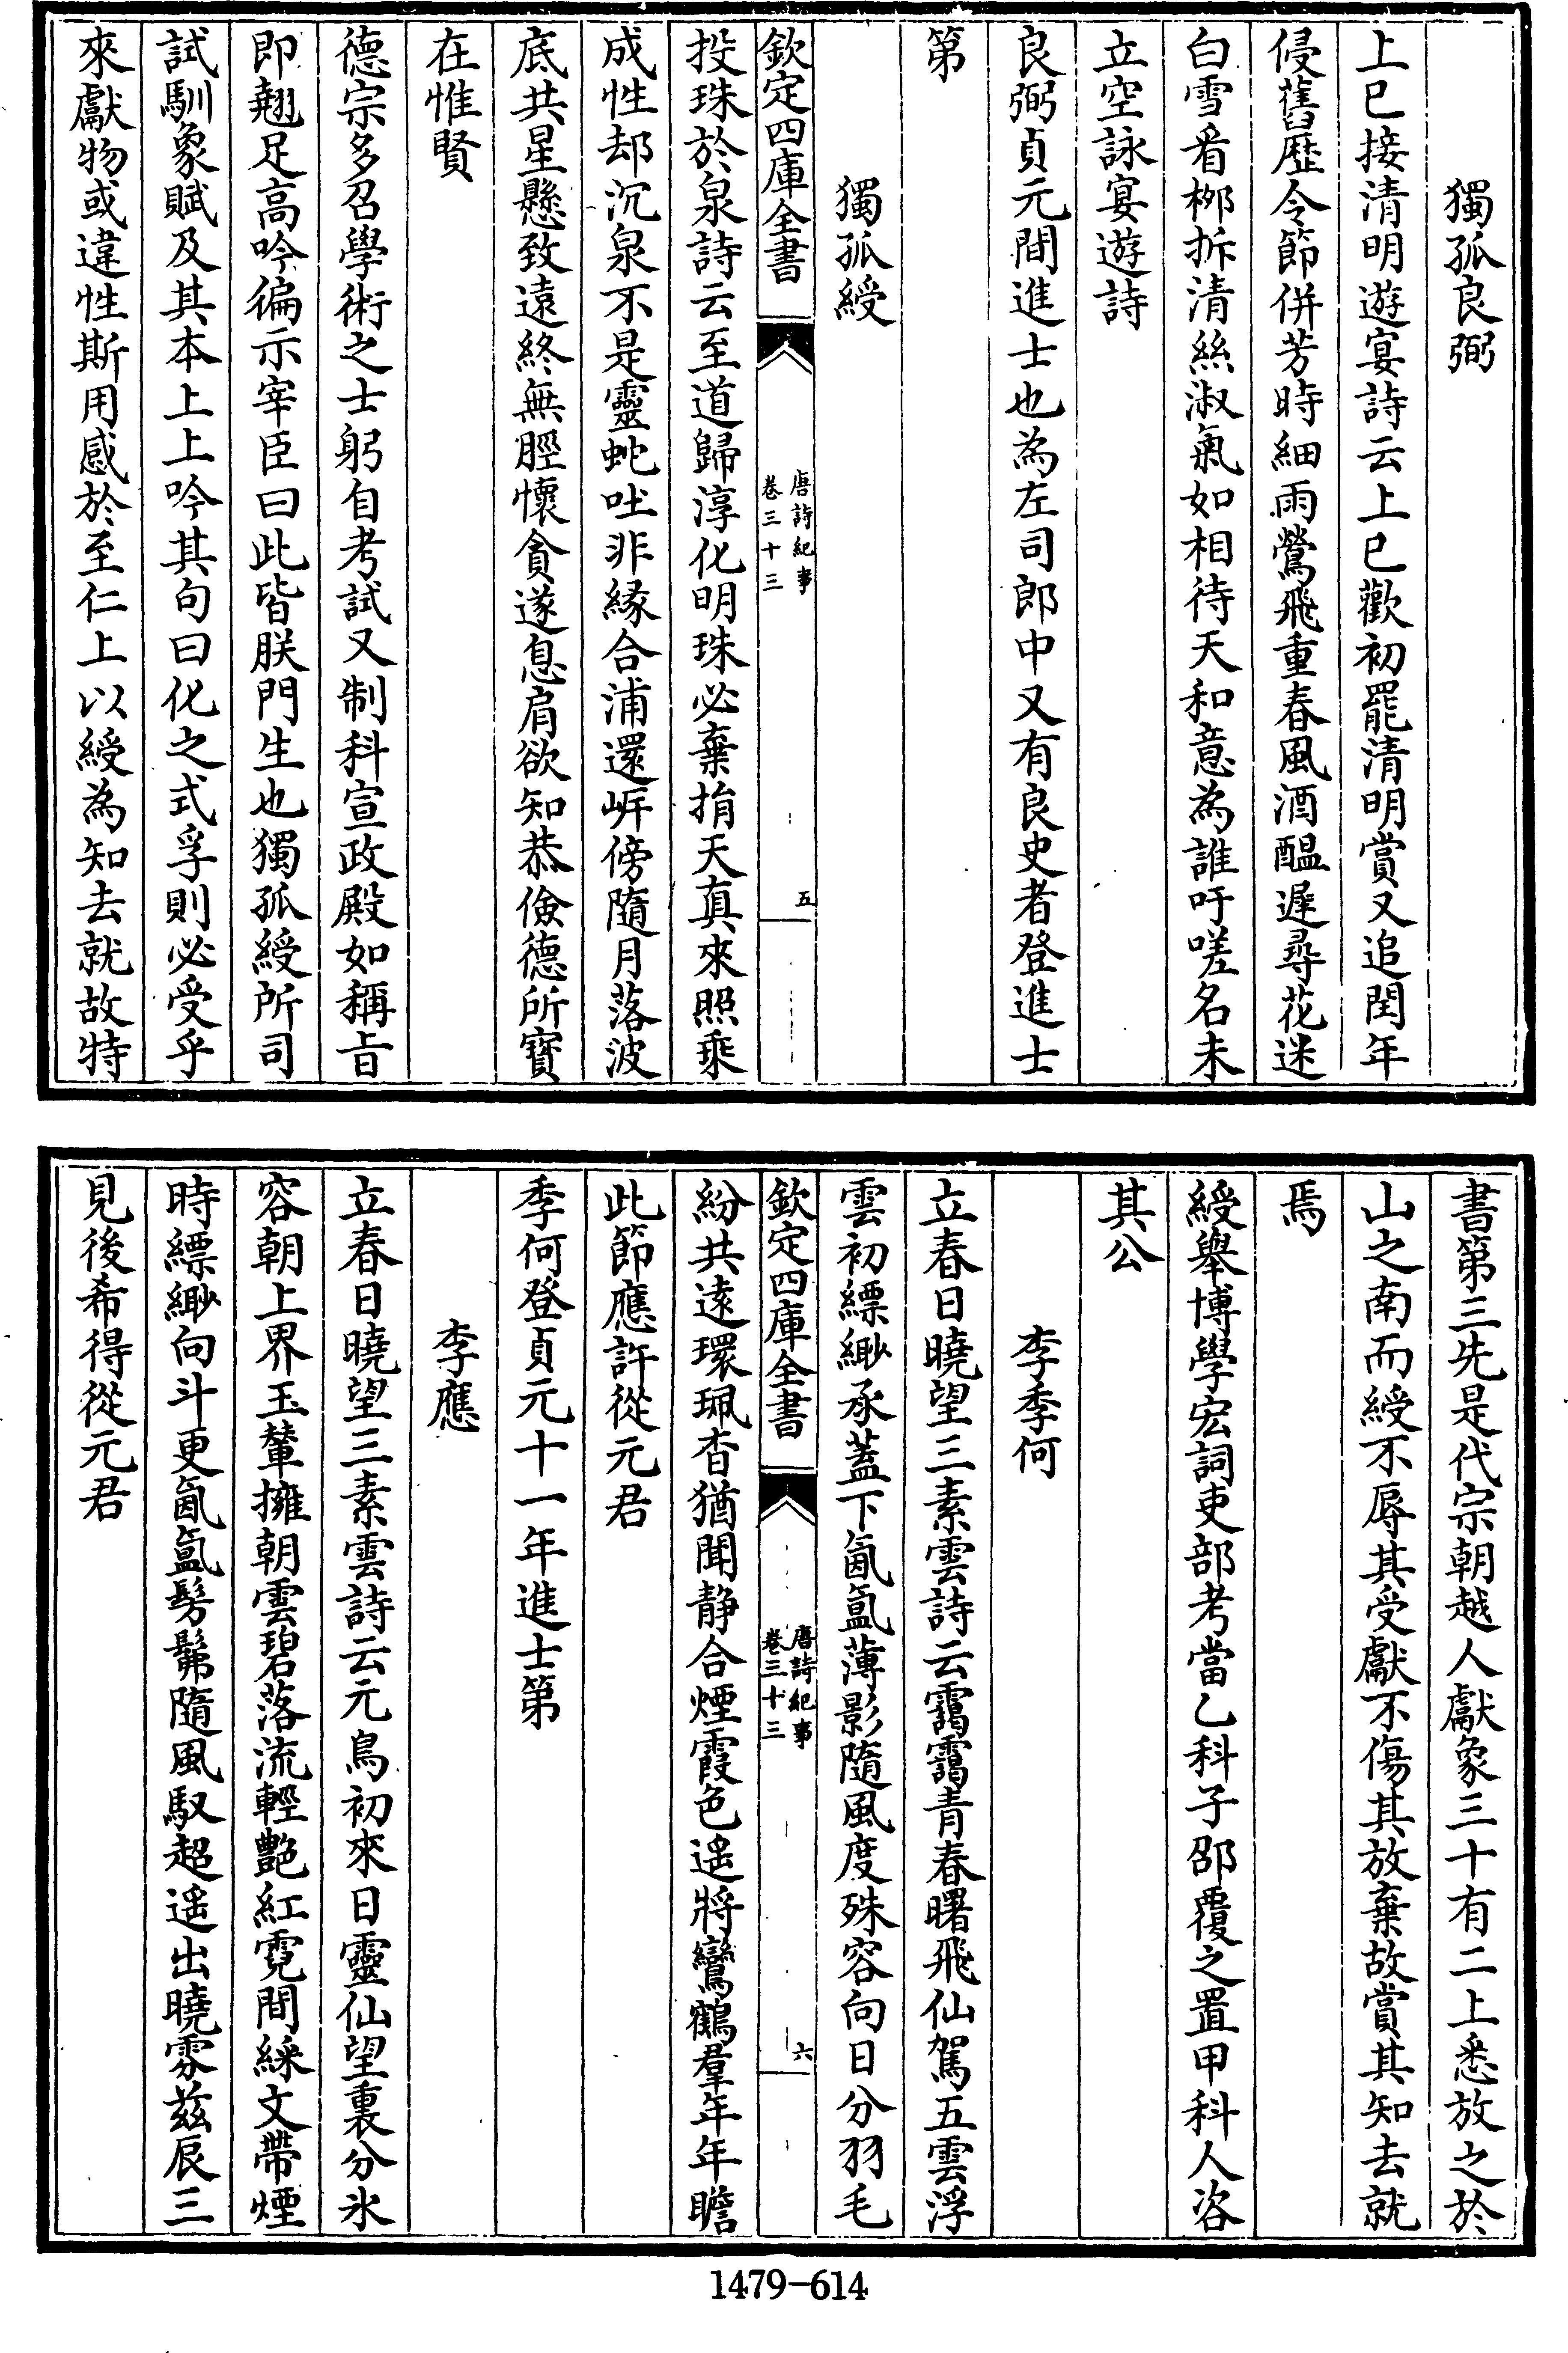 獨孤良弼
上巳接清明遊宴詩云上巳歡初罷清明賞又追閏年
侵舊歴令節併芳時細雨鶯飛重春風酒醖遲尋花迷
白雪看栁拆清絲淑氣如相待天和意為誰吁嗟名未
立空詠宴遊詩
良弼貞元間進士也為左司郎中又有良史者登進士
第
獨孤綬
欽定四庫全書
唐詩紀事
卷三十三
五
投珠於泉詩云至道歸淳化明珠必棄捐天真來照乘
成性却沉泉不是靈蛇吐非緣合浦還岸傍隨月落波
底共星懸致遠終無脛懷貪遂息肩欲知恭儉德所寳
在惟賢
德宗多召學術之士躬自考試又制科宣政殿如稱㫖
即翹足高吟徧示宰臣曰此皆朕門生也獨孤綬所司
試馴象賦及其本上上吟其句曰化之式孚則必受乎
來獻物或違性斯用感於至仁上以綬為知去就故特
書第三先是代宗朝越人獻象三十有二上悉放之於
山之南而綬不辱其受獻不傷其放棄故賞其知去就
焉
綬舉博學宏詞吏部考當乙科子邵覆之置甲科人咨
其公
李季何
立春日曉望三素雲詩云靄靄青春曙飛仙駕五雲浮
雲初縹緲承蓋下氤氲薄影隨風度殊容向日分羽毛
欽定四庫全書
唐詩紀事
卷三十三
六
紛共遠環珮杳猶聞静合煙霞色遥將鸞鶴羣年年瞻
此節應許從元君
季何登貞元十一年進士第
李應
立春日曉望三素雲詩云元鳥初來日靈仙望裏分氷
容朝上界玉輦擁朝雲碧落流輕艶紅霓間綵文帶煙
時縹緲向斗更氤氲髣髴隨風馭超遥出曉雰兹辰三
見後希得從元君
1479-614